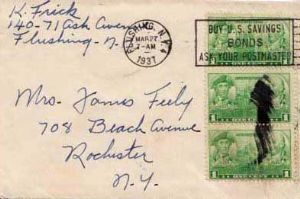 K. Frick
140-71 Ash Avenue
Flushing - N.Y.
FLUSHING, N.Y.
MAR 27
7-AM
1937
BUY U.S. SAVINGS
BONDS
ASK YOUR POSTMASTER
Mrs. James Feely
708 Beach Avenue
Rochester
N.Y.
1 1
1 1